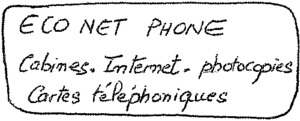 ECO NET PHONE
Cabines. Internet. photocopies
Cartes téléphoniques